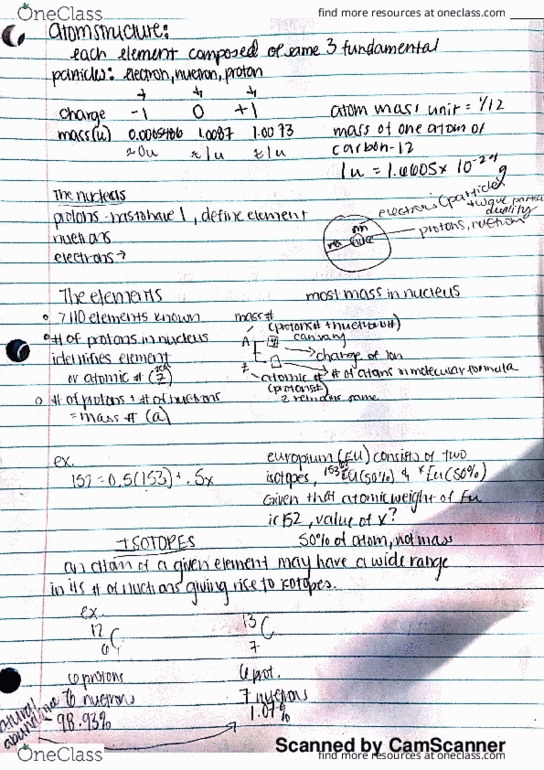 OneClass
find more resources at oneclass.com
atom structure:
each element composed of same 3 fundamental
particles: electron, nuetron, proton
charge -1 0 +1
mass(u) 1.0087 1.0073
≈0u ≈1u ≈1u
atom mass unit = 1/12
mass of one atom of
carbon-12
1u = 1.6605 x 10⁻²⁴ g
The nucleus
protons - must have 1, define element
nuetrons
electrons
electrons (particle
+ wave particle
duality)
protons, nuetrons
The elements
most mass in nucleus
7110 elements known
# of protons in nucleus
identifies element
or atomic # (Z)
# of protons + # of nuetrons
= mass # (a)
mass #
(proton# + nuetron#)
can vary
A
charge of ion
# of atoms in molecular formula
Z
atomic #
(proton#)
Z remains same
ex.
152 = 0.5(153) + .5x
europium (EU) consists of two
isotopes, ¹⁵³EU(50%) & ˣEu(50%)
Given that atomic weight of Eu
is 152, value of x?
50% of atom, not mass
ISOTOPES
an atom of a given element may have a wide range
in its # of nuetrons giving rise to isotopes.
ex.
12 C 6
13 C 7
6 protons
6 nuetrons
98.93%
6 prot.
7 nuetrons
1.07%
natural abundance
Scanned by CamScanner
OneClass
find more resources at oneclass.com